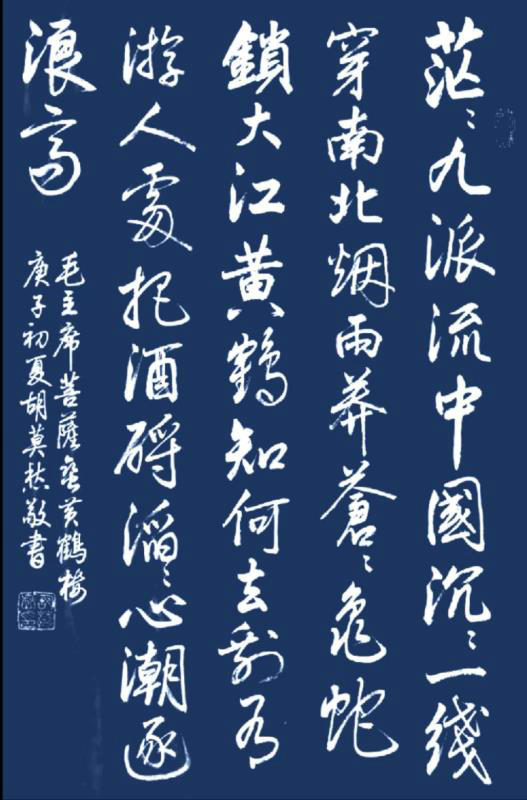 茫〻九派流中國沉〻一线
穿南北烟雨莽蒼〻龜蛇
鎖大江黄鶴知何去剩有
游人處把酒酹滔〻心潮逐
浪高
毛主席菩薩蛮黄鶴楼
庚子初夏胡莫愁敬書